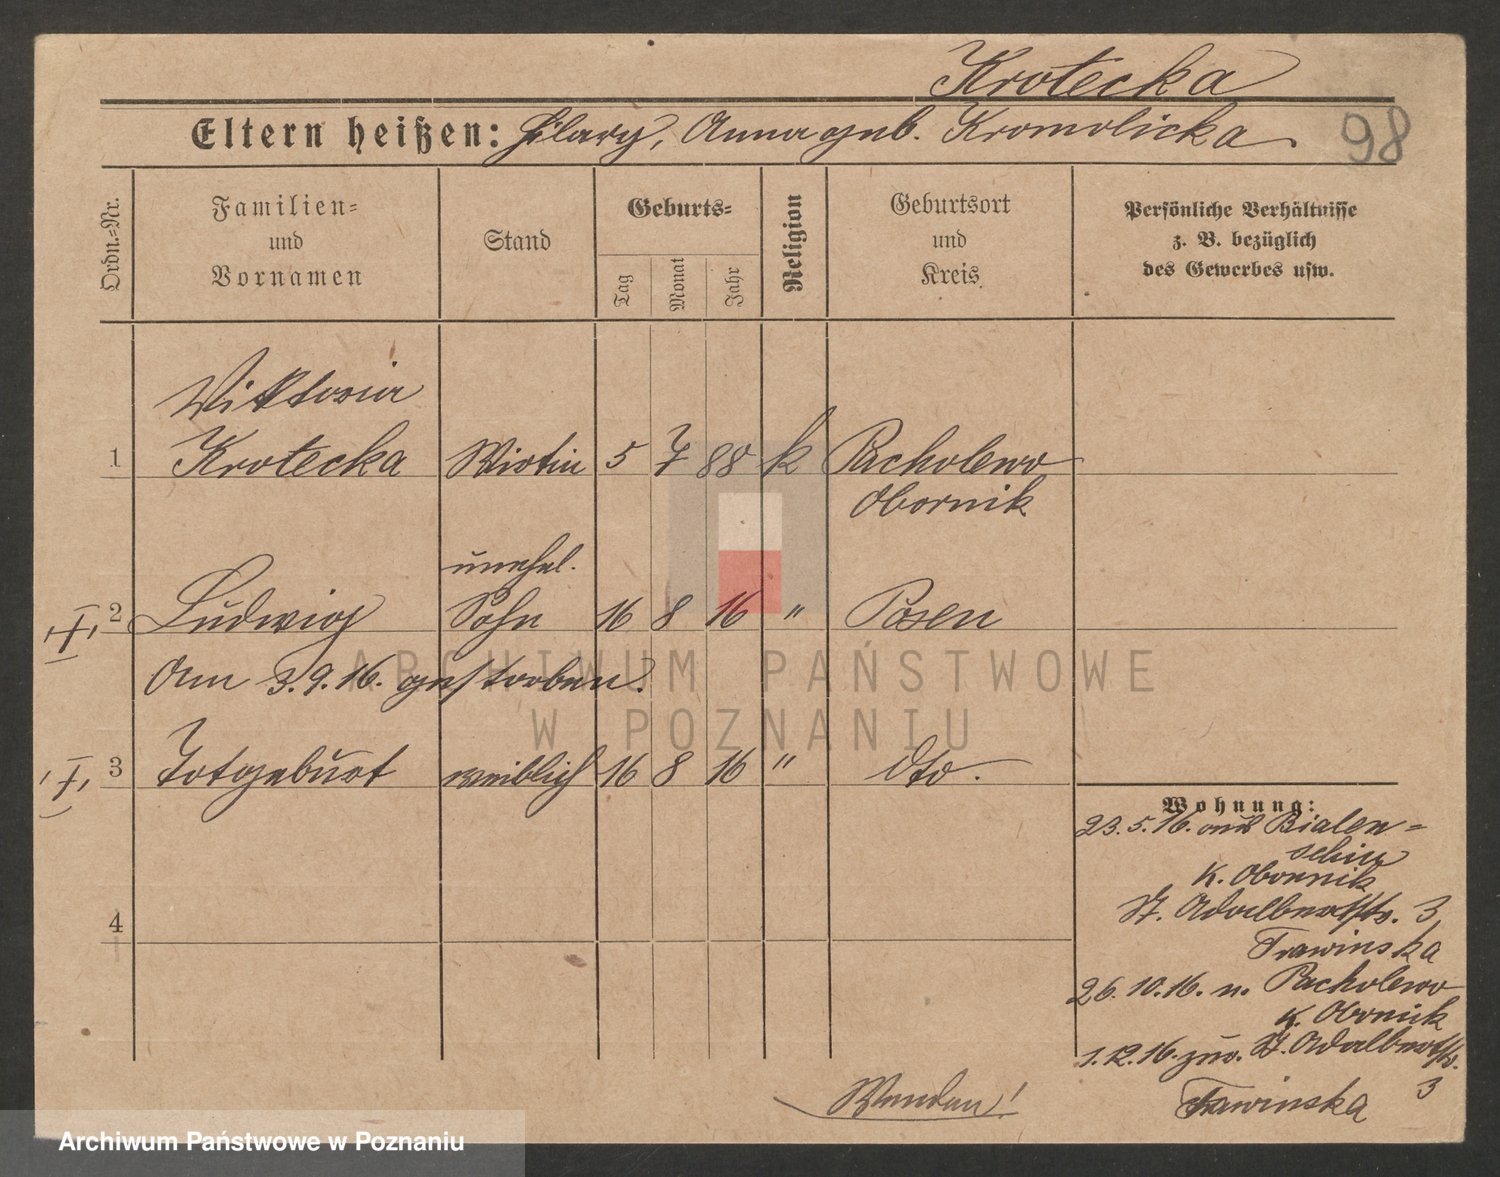 Krotecka
Eltern heißen: Hilary, Anna geb. Kromolicka
98
Ordn.=Nr.
Familien=
und
Vornamen
Stand
Geburts=
Tag
Monat
Jahr
Religion
Geburtsort
und
Kreis
Persönliche Verhältnisse
z. B. bezüglich
des Gewerbes usw.
Viktoria
1 Krotecka Wirtin 5 7 88 k Pacholewo
Obornik
unehel.
2 Ludwig Sohn 16 8 16 " Posen
Am 3.9.16. gestorben.
3 Totgeburt weiblich 16 8 16 " dto.
4
Wohnung:
23.5.16. aus Bialen=
schin
K. Obornik
St. Adalbertstr. 3
Trawinska
26.10.16. n. Pacholewo
K. Obornik
1.12.16. zur. St. Adalbertstr.
3
Trawinska
Wenden!
ARCHIWUM PAŃSTWOWE
W POZNANIU
Archiwum Państwowe w Poznaniu